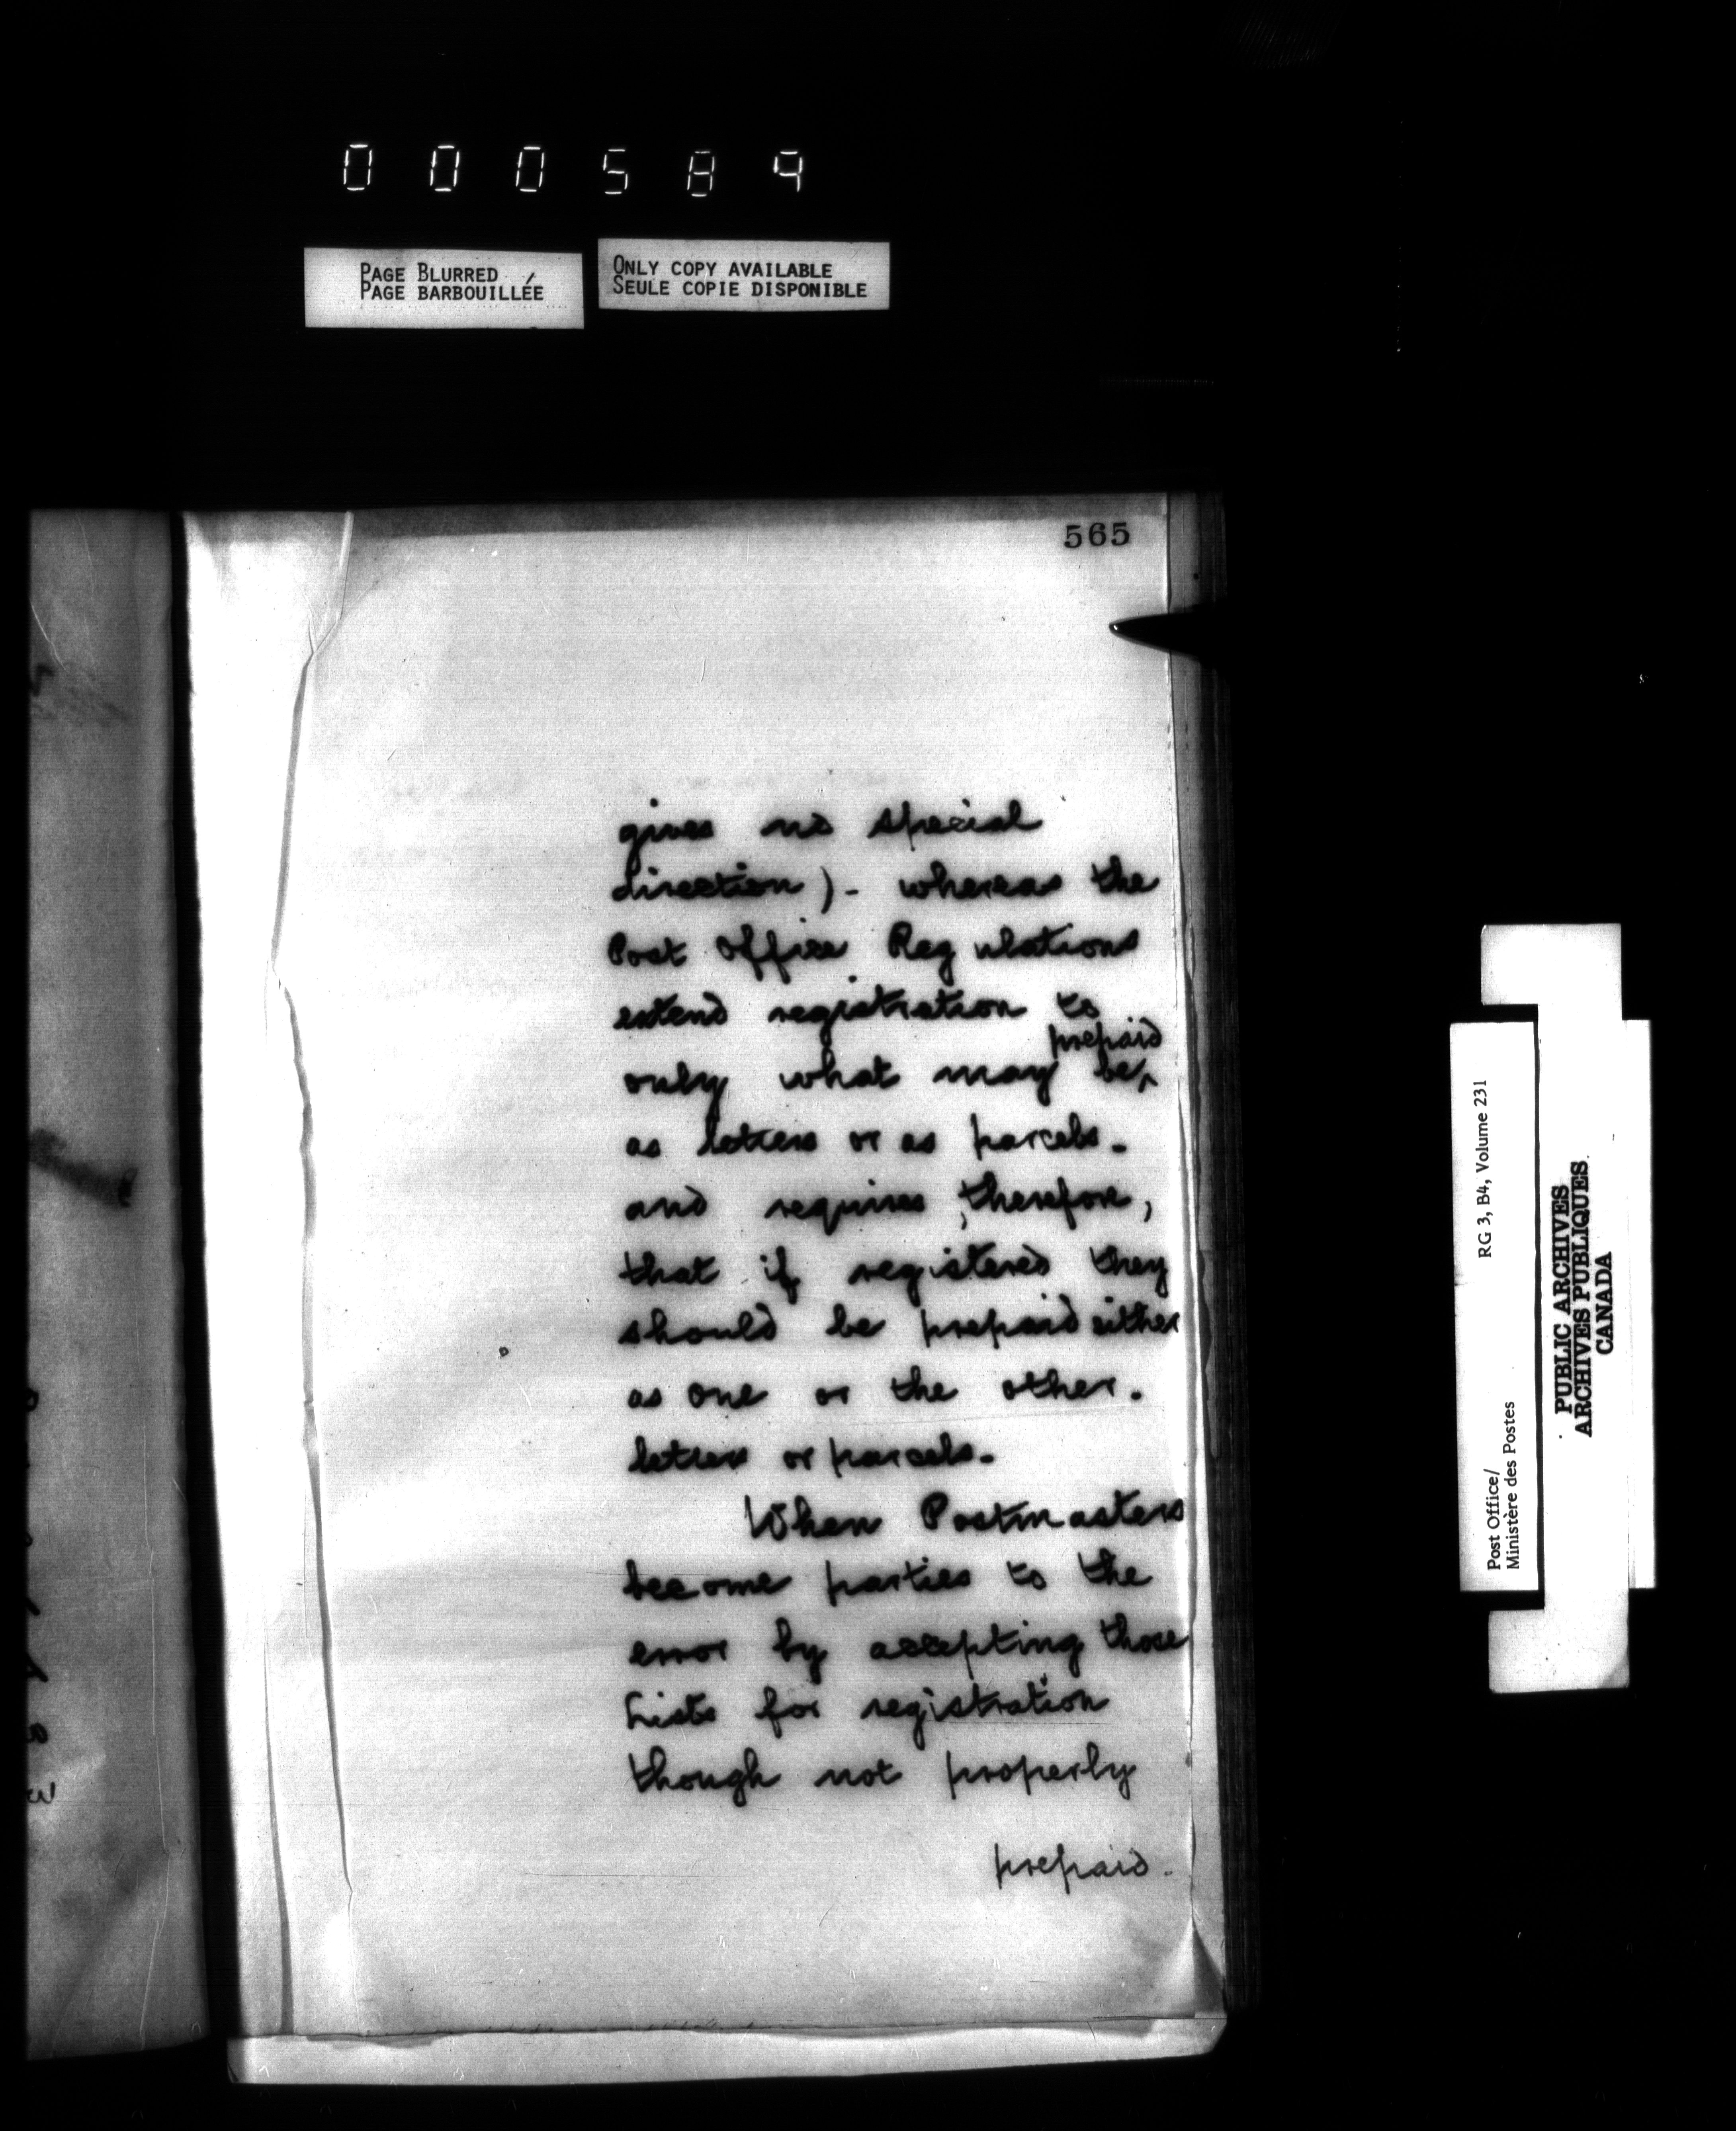 000589
PAGE BLURRED
PAGE BARBOUILLÉE
ONLY COPY AVAILABLE
SEULE COPIE DISPONIBLE
565
gives no special
direction). whereas the
Post Office Regulations
extend registration to
prepaid
only what may be^
as letters or as parcels.
and requires, therefore,
that if registered they
should be prepaid either
as one or the other.
letters or parcels.
When Postmasters
become parties to the
error by accepting those
Lists for registration
though not properly
prepaid.
Post Office/ RG 3, B4, Volume 231
Ministère des Postes
PUBLIC ARCHIVES
ARCHIVES PUBLIQUES
CANADA